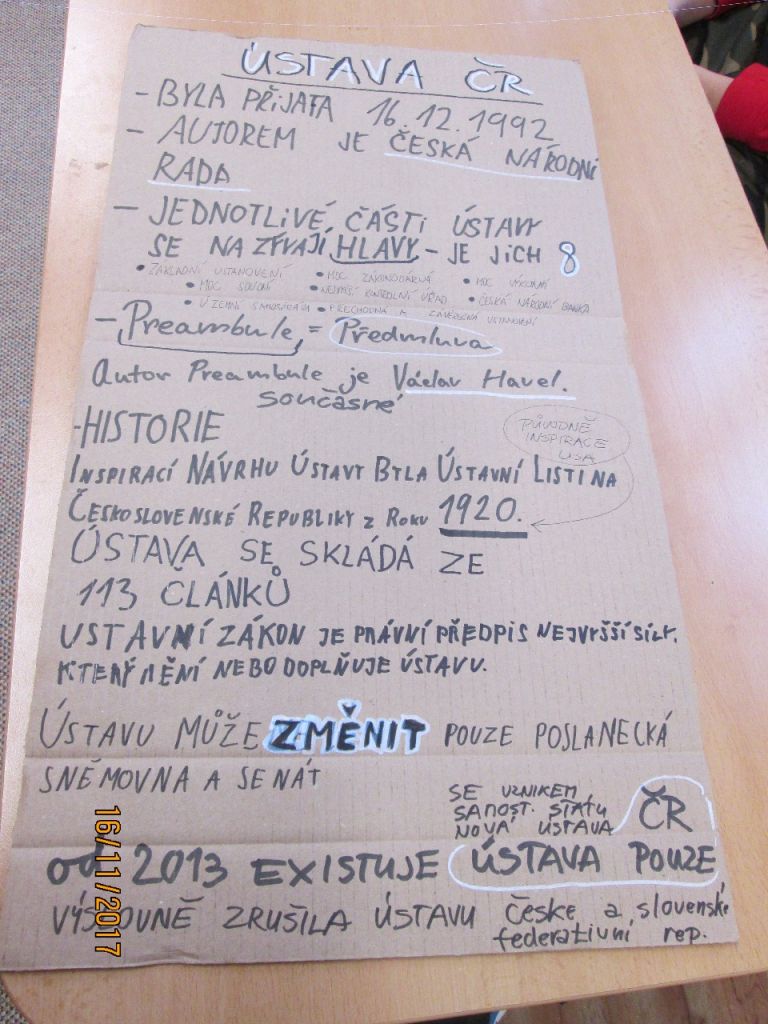 ÚSTAVA ČR
- BYLA PŘIJATA 16.12.1992
- AUTOREM JE ČESKÁ NÁRODNÍ
RADA
- JEDNOTLIVÉ ČÁSTI ÚSTAVY
SE NAZÝVAJÍ HLAVY - JE JICH 8
• ZÁKLADNÍ USTANOVENÍ • MOC ZÁKONODÁRNÁ • MOC VÝKONNÁ
• MOC SOUDNÍ • NEJVYŠŠÍ KONTROLNÍ ÚŘAD • ČESKÁ NÁRODNÍ BANKA
• ÚZEMNÍ SAMOSPRÁVA • PŘECHODNÁ A ZÁVĚREČNÁ USTANOVENÍ
- Preambule, = Předmluva
autor Preambule je Václav Havel.
současné
- HISTORIE
PŮVODNĚ
INSPIRACE
USA
INSPIRACÍ NÁVRHU ÚSTAVY BYLA ÚSTAVNÍ LISTINA
ČESKOSLOVENSKÉ REPUBLIKY Z ROKU 1920.
ÚSTAVA SE SKLÁDÁ ZE
113 ČLÁNKŮ
USTAVNÍ ZÁKON JE PRÁVNÍ PŘEDPIS NEJVYŠŠÍ SÍLY,
KTERÝ MĚNÍ NEBO DOPLŇUJE ÚSTAVU.
ÚSTAVU MŮŽE ZMĚNIT POUZE POSLANECKÁ
SNĚMOVNA A SENÁT
SE VZNIKEM
SAMOST. STÁTU
NOVÁ ÚSTAVA
ČR
od 2013 EXISTUJE ÚSTAVA POUZE
VÝSLOVNĚ ZRUŠILA ÚSTAVU České a slovenské
federativní rep.
16/11/2017